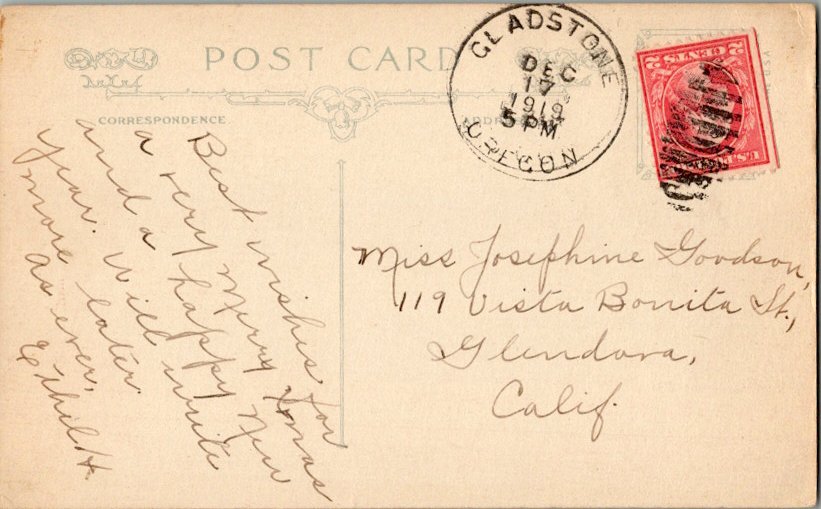 POST CARD
CORRESPONDENCE
GLADSTONE
DEC
17
1919
5 PM
OREGON
2 CENTS 2
Best wishes for
a very merry Xmas
and a happy New
Year. Will write
more later.
As ever,
Ethel H.
Miss Josephine Goodson,
119 Vista Bonita St.,
Glendora,
Calif.